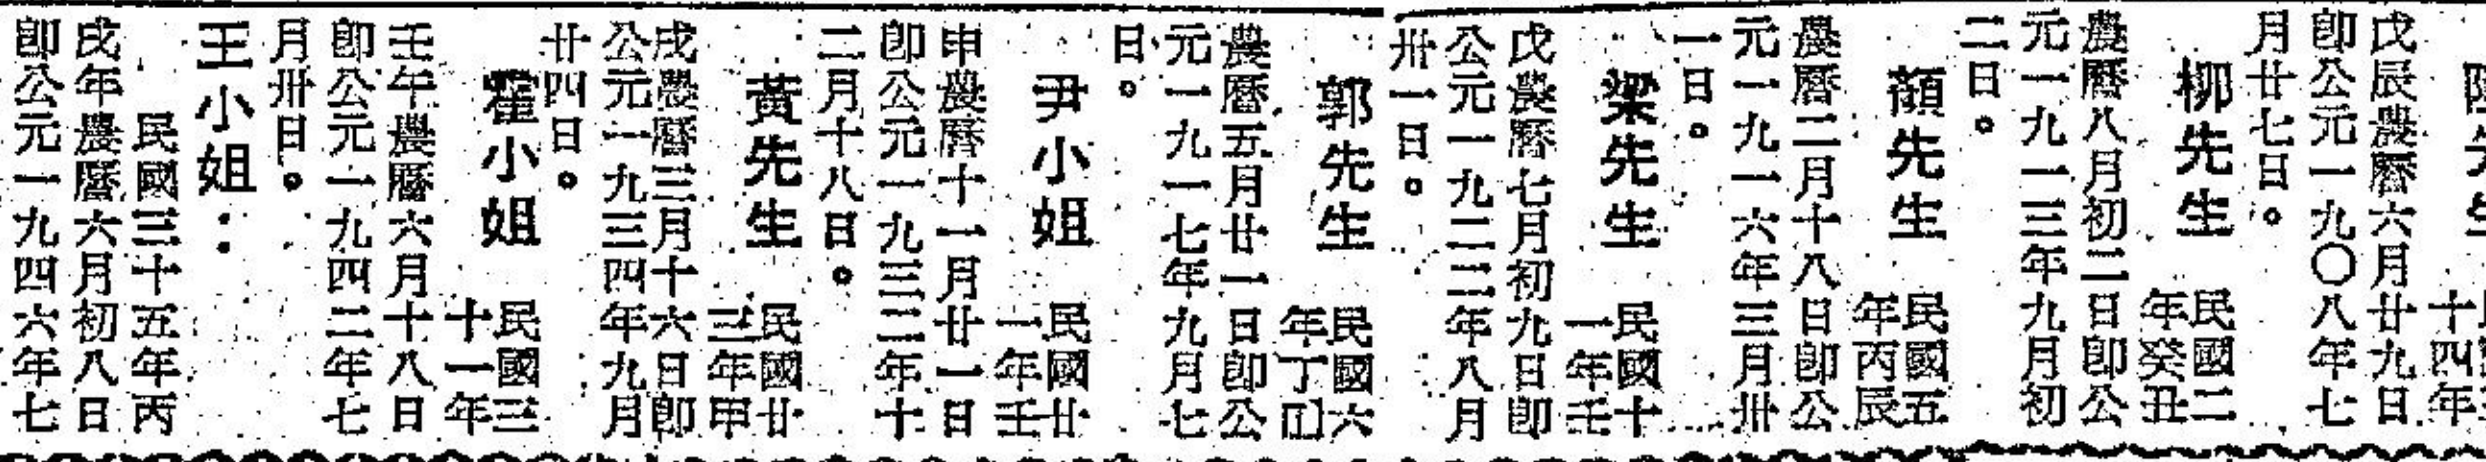 十四年
戊辰農曆六月廿九日
即公元一九〇八年七
月廿七日。
柳先生 民國二
年癸丑
農曆八月初二日即公
元一九一三年九月初
二日。
顏先生 民國五
年丙辰
農曆二月十八日即公
元一九一六年三月卅
一日。
梁先生 民國十
一年壬
戊農曆七月初九日即
公元一九二二年八月
卅一日。
郭先生 民國六
年丁巳
農曆五月廿一日即公
元一九一七年九月七
日。
尹小姐 民國廿
一年壬
申農曆十一月廿一日
即公元一九三二年十
二月十八日。
黃先生 民國廿
三年甲
戌農曆三月十六日即
公元一九三四年九月
廿四日。
霍小姐 民國三
十一年
壬午農曆六月十八日
即公元一九四二年七
月卅日。
王小姐：
民國三十五年丙
戌年農曆六月初八日
即公元一九四六年七